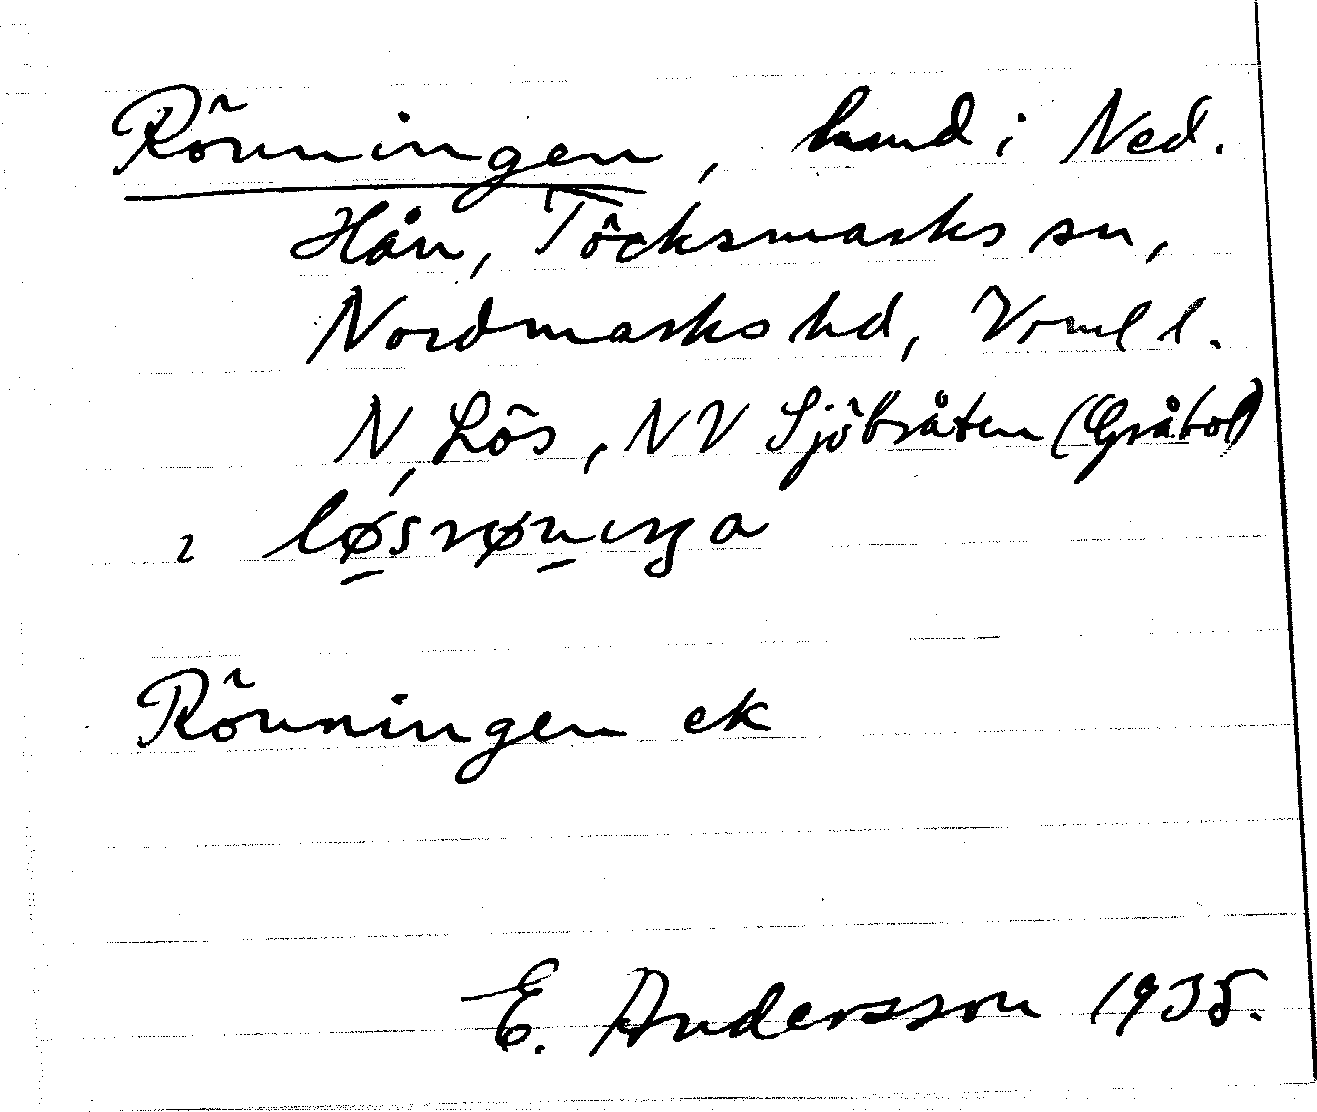 Rönningen, hmd i Ned.
Hån, Töcksmarks sn,
Nordmarks hd, Vrml l.
N, Lös, NV Sjöbråten (Gråbol)
løsrønıŋa
Rönningen ek
E. Andersson 1935.